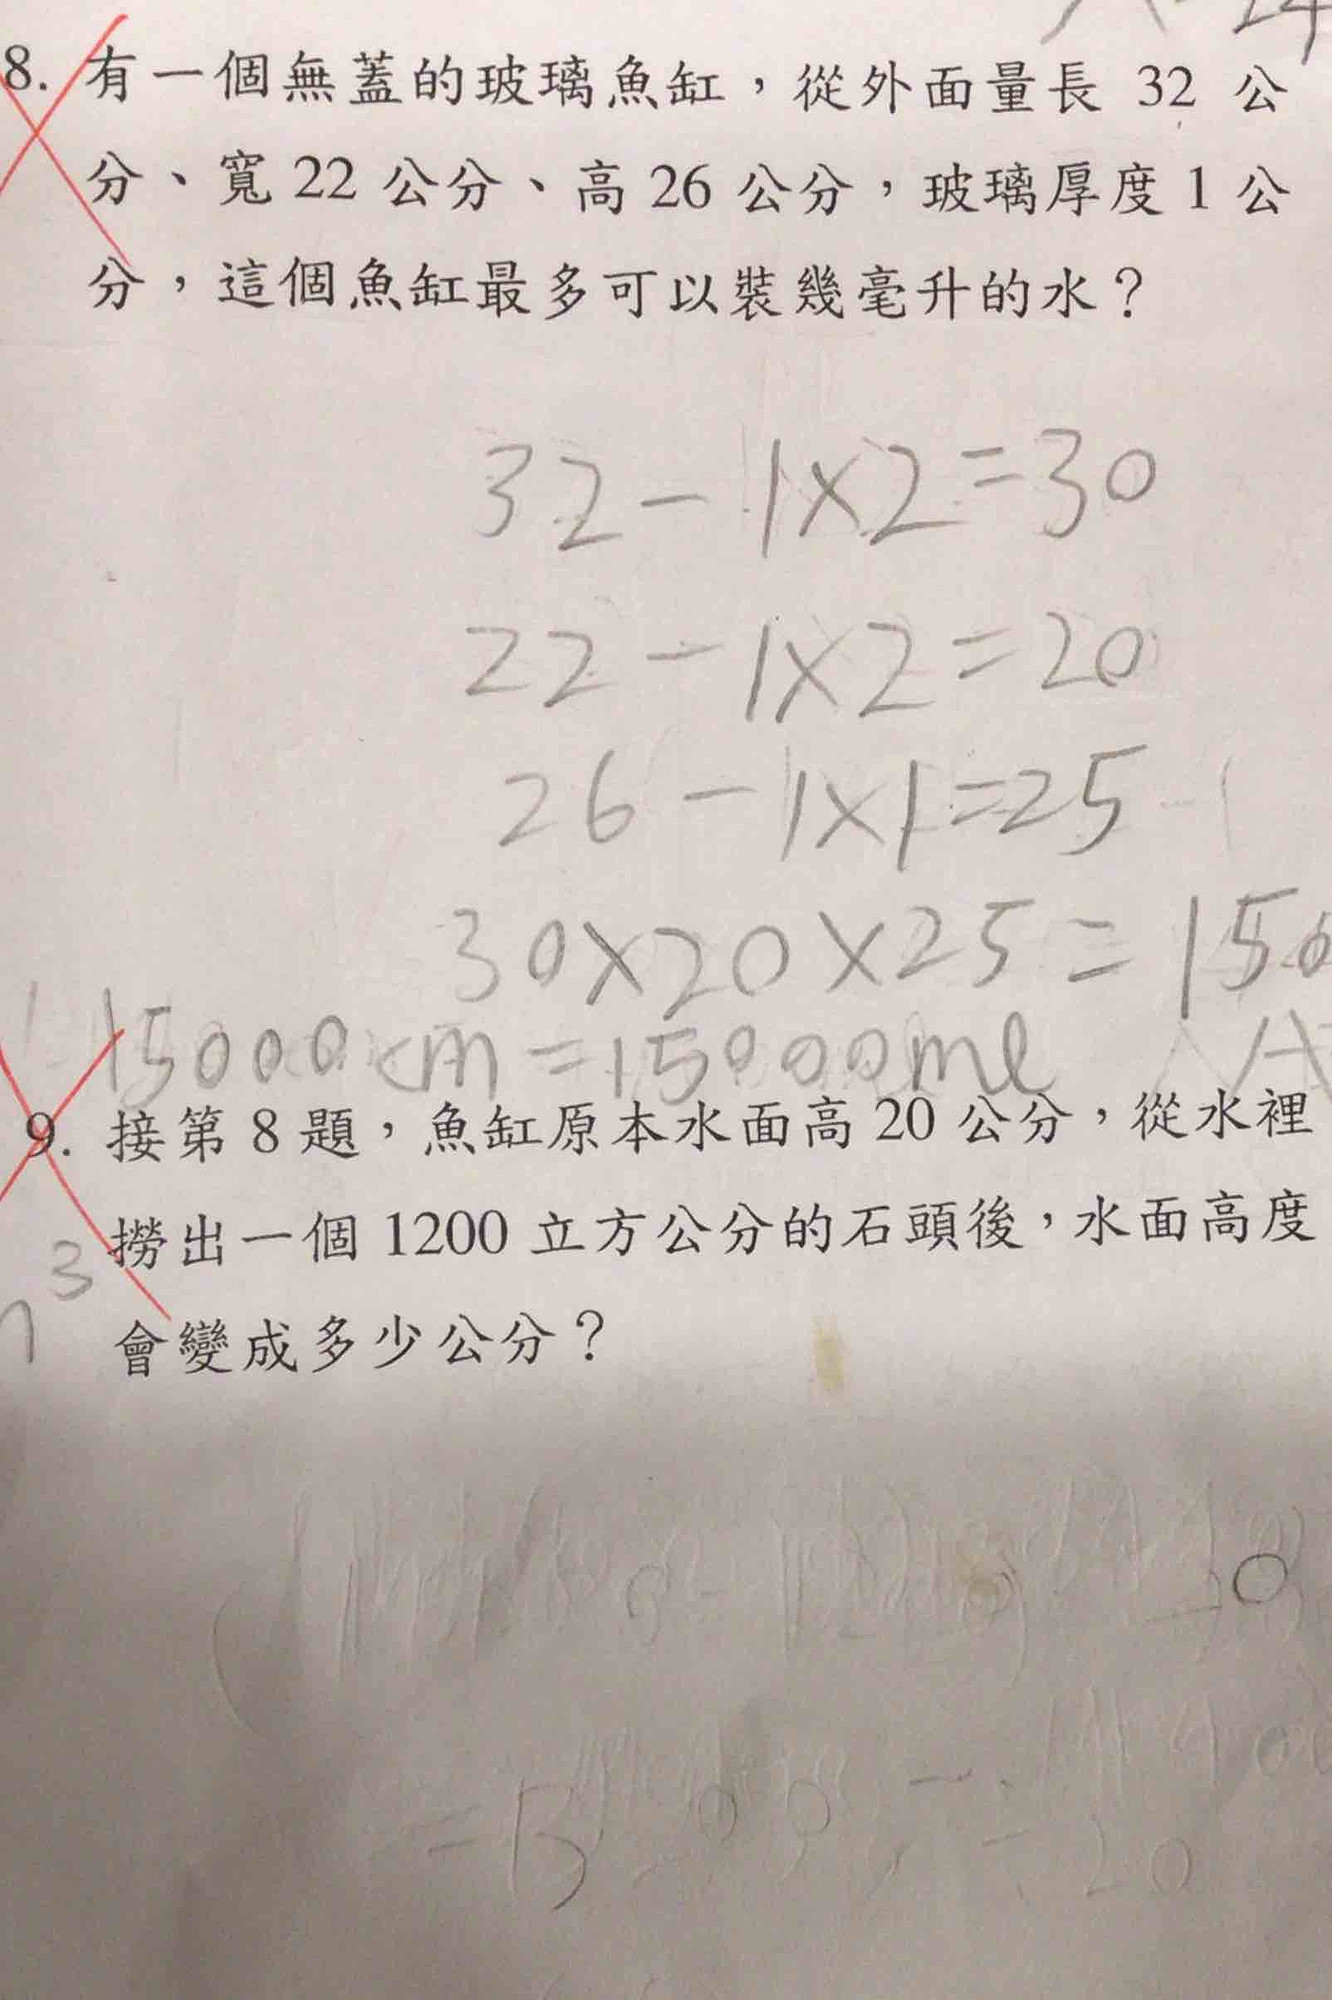 8. 有一個無蓋的玻璃魚缸，從外面量長 32 公
分、寬 22 公分、高 26 公分，玻璃厚度 1 公
分，這個魚缸最多可以裝幾毫升的水？
32-1×2=30
22-1×2=20
26-1×1=25
30×20×25=150
15000cm=15000ml
9. 接第 8 題，魚缸原本水面高 20 公分，從水裡
撈出一個 1200 立方公分的石頭後，水面高度
3
會變成多少公分？